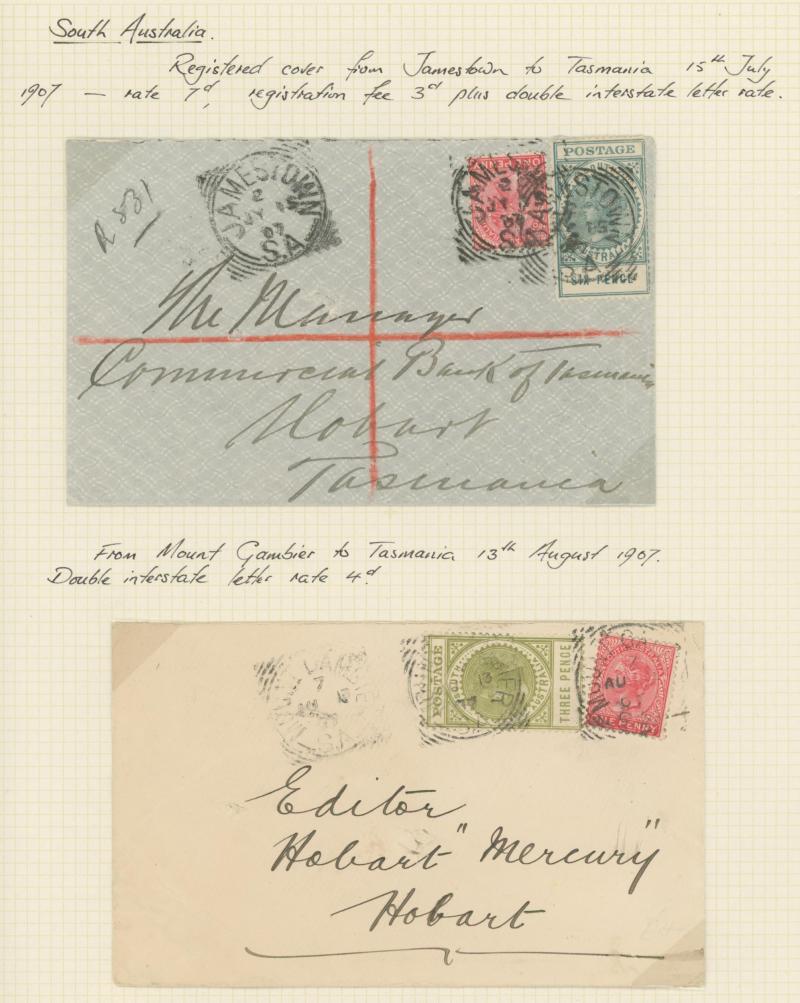 South Australia.
Registered cover from Jamestown to Tasmania 15th July
1907 — rate 7d, registration fee 3d plus double interstate letter rate.
R 831
JAMESTOWN
2
JY
S.A.
ONE PENNY
JAMESTOWN
2
JY
POSTAGE
SOUTH
AUSTRALIA
SIX PENCE
The Manager
Commercial Bank of Tasmania
Hobart
Tasmania
From Mount Gambier to Tasmania 13th August 1907.
Double interstate letter rate 4d.
7
S.A.
POSTAGE
SOUTH
AUSTRALIA
THREE PENCE
13
7
AU
ONE PENNY
Editor
Hobart "Mercury"
Hobart